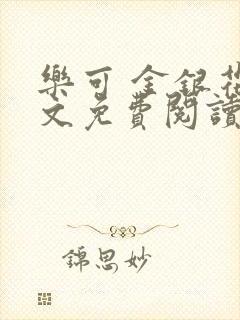 樂可 金銀花
文免費閱讀
錦思妙